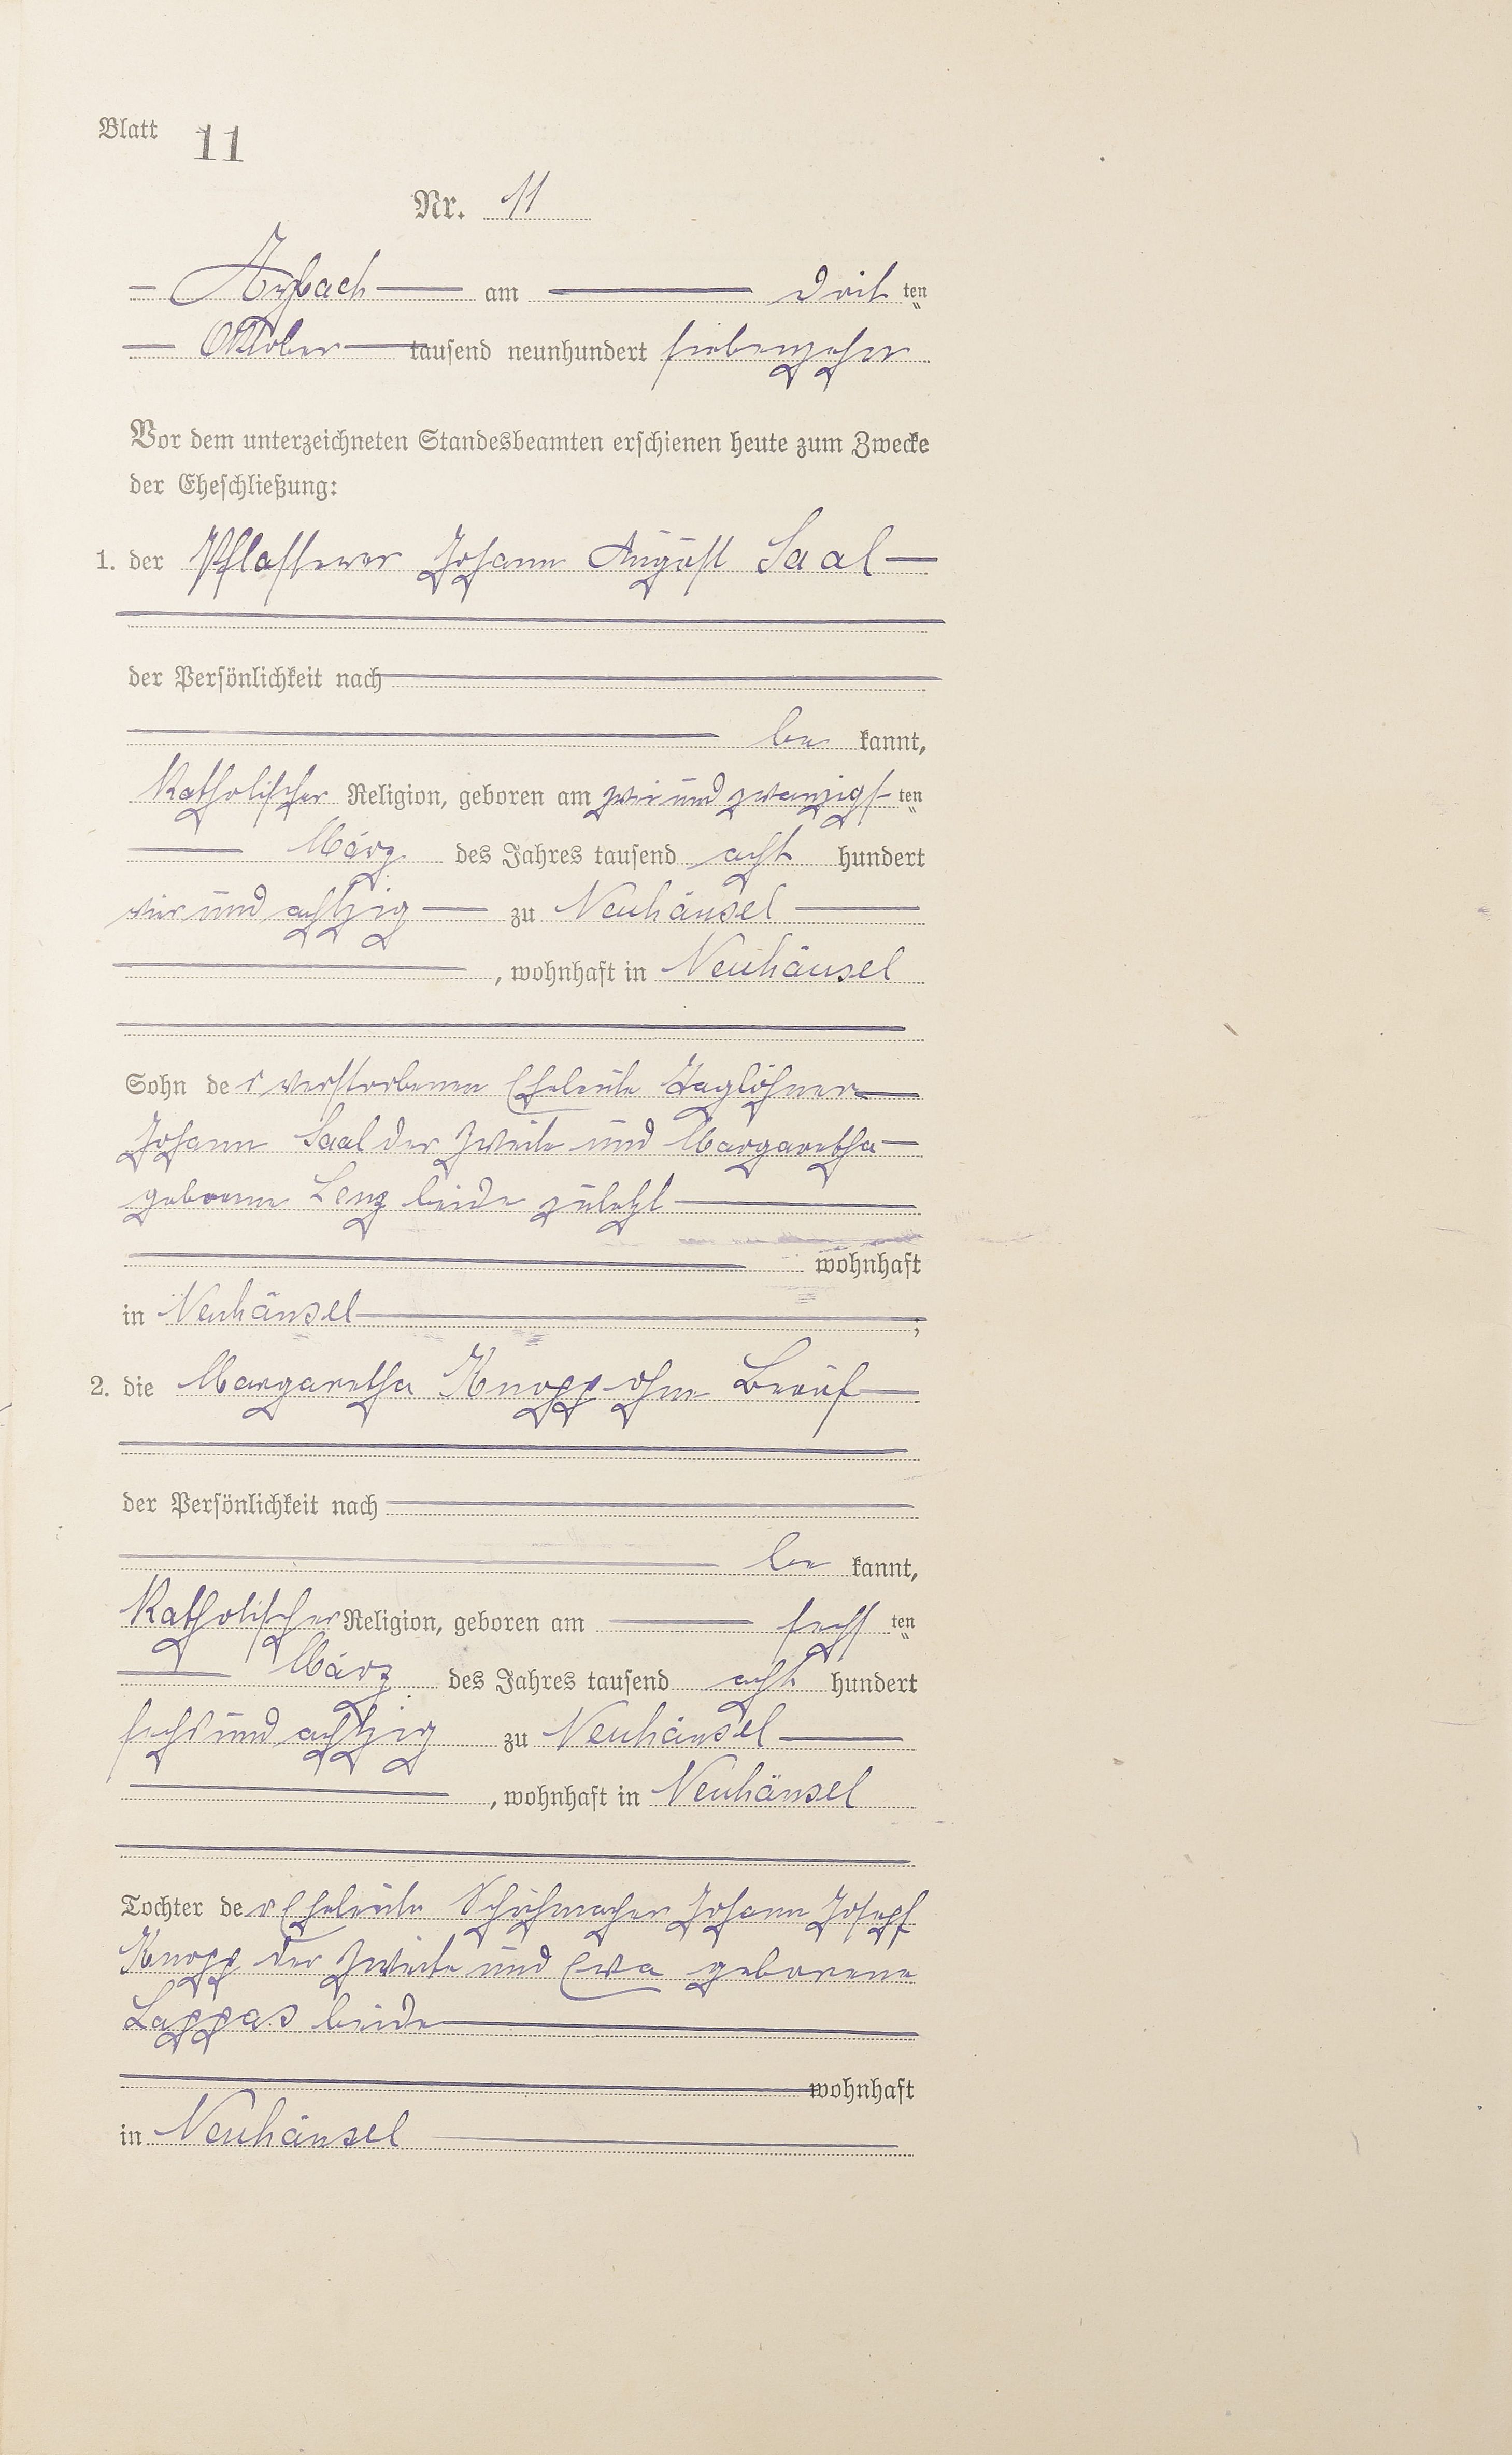 Blatt 11
Nr. 11
Arzbach am dritten
Oktober tausend neunhundert siebenzehn
Vor dem unterzeichneten Standesbeamten erschienen heute zum Zwecke
der Eheschließung:
1. der Pflasterer Johann August Saal
der Persönlichkeit nach
be kannt,
Katholischer Religion, geboren am zwei und zwanzigsten
März des Jahres tausend acht hundert
vier und achtzig zu Neuhäusel
, wohnhaft in Neuhäusel
Sohn der verstorbenen Eheleute Taglöhner
Johann Saal der Zweite und Margaretha
geborene Lenz beide zuletzt
wohnhaft
in Neuhäusel;
2. die Margaretha Knopp ohne Beruf
der Persönlichkeit nach
be kannt,
Katholischer Religion, geboren am sechsten
März des Jahres tausend acht hundert
sechs und achtzig zu Neuhäusel
, wohnhaft in Neuhäusel
Tochter der Eheleute Schuhmacher Johann Joseph
Knopp der Zweite und Eva geborene
Lappas beide
wohnhaft
in Neuhäusel